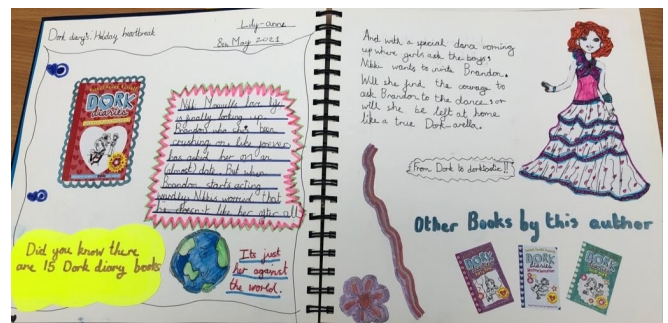 Dork diary's: Holiday heartbreak
Lily-anne
8th May 2021
DORK
diaries
Nikki Maxwells love life
is finally looking up.
Brandon who she's been
crushing on like forever
has asked her on an
(almost) date. But when
Brandon starts acting
weirdly Nikkis worried that
doesn't like her after all
Did you know there
are 15 Dork diary books
Its just
her against
the world.
And with a special dance coming
up where girls ask the boys,
Nikki wants to invite Brandon.
Will she find the courage to
ask Brandon to the dance, or
will she be left at home
like a true Dork-arella.
From Dork to dorktastic!!
Other Books by this author
DORK
diaries
DORK
diaries
DORK
diaries